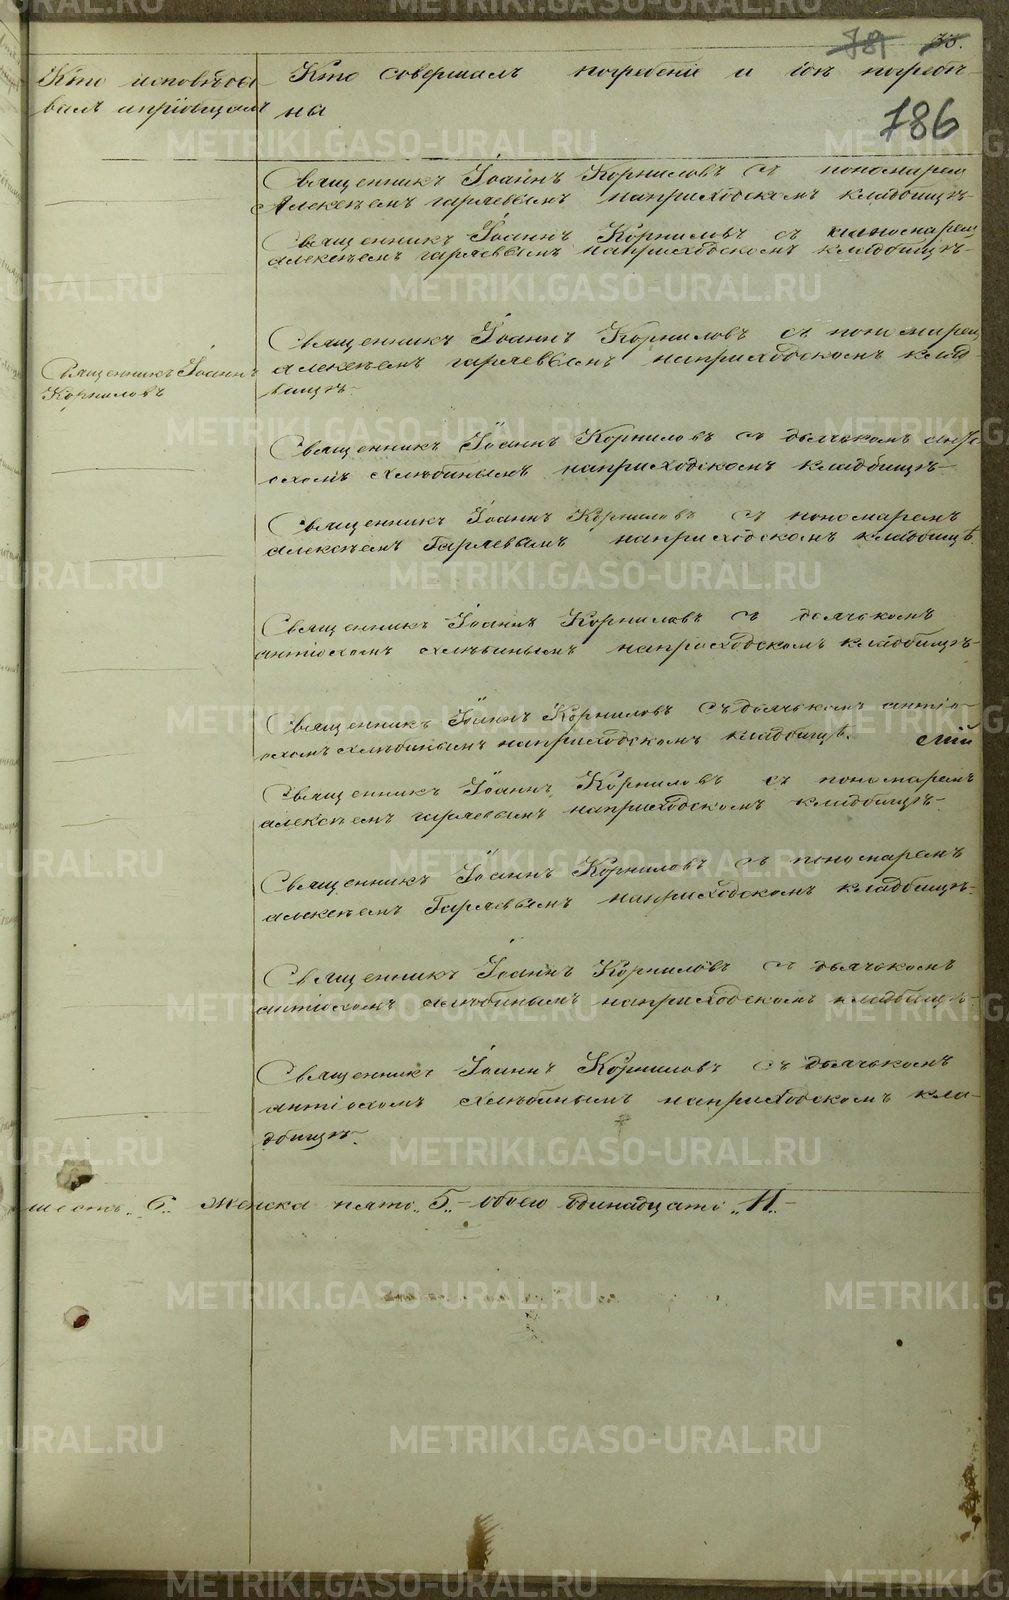 781 35.
186
Кто исповѣды
валъ и пріобщалъ
Кто совершалъ погребеніе и гдѣ погребе-
ны
Священникъ Іоаннъ Корниловъ съ пономарем
Алексѣемъ Гаряевымъ на приходскомъ кладбищѣ
Священникъ Іоаннъ Корниловъ съ пономарем
алексѣемъ гаряевымъ на приходскомъ кладбищѣ
Священникъ Іоаннъ
Корниловъ
Священникъ Іоаннъ Корниловъ съ пономарем
алексѣемъ гаряевымъ на приходскомъ клад-
бищѣ.
Священникъ Іоаннъ Корниловъ съ дьячькомъ антi
охомъ хлѣбинымъ на приходскомъ кладбищѣ
Священникъ Іоаннъ Корниловъ съ пономаремъ
алексѣемъ Гаряевымъ на приходскомъ кладбищѣ.
Священникъ Іоаннъ Корниловъ съ дьячькомъ
антіохомъ хлѣбинымъ на приходскомъ кладбищѣ
Священникъ Іоаннъ Корниловъ съ дьячькомъ антіо-
охомъ хлѣбинымъ на приходскомъ кладбищѣ.
Священникъ Іоаннъ Корниловъ съ пономаремъ
алексѣемъ гаряевымъ на приходскомъ кладбищѣ
Священникъ Іоаннъ Корниловъ съ пономаремъ
алексѣемъ Гаряевымъ на приходскомъ кладбищѣ
Священникъ Іоаннъ Корниловъ съ дьячькомъ
антіохомъ хлѣбинымъ на приходскомъ кладбищѣ
Священникъ Іоаннъ Корниловъ съ дьячькомъ
антіохомъ хлѣбинымъ на приходскомъ кла-
дбищѣ.
шесть „6„ женска пять „5„ обоего одинадцать „11„
METRIKI.GASO-URAL.RU